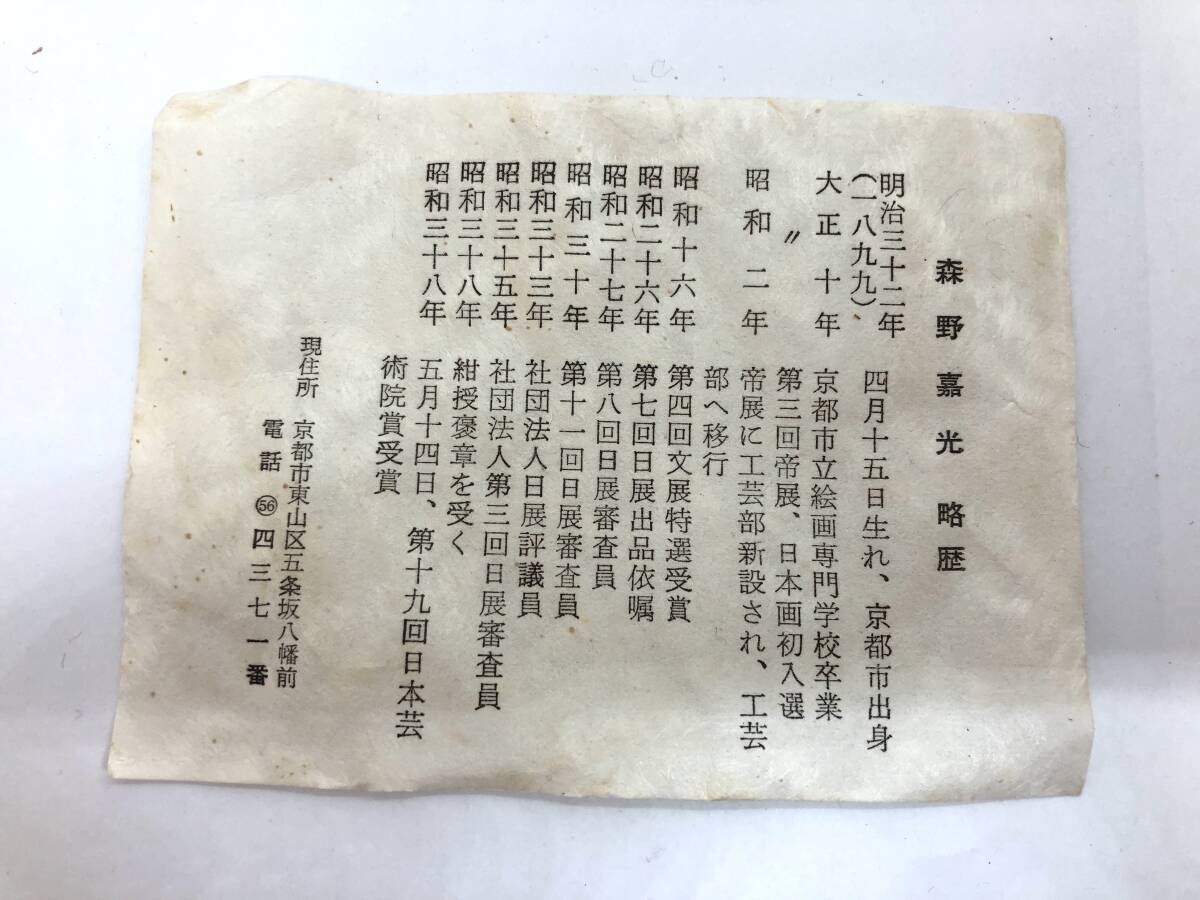 森野嘉光 略歴
明治三十二年 四月十五日生れ、京都市出身
(一八九九)
大正十年 京都市立絵画専門学校卒業
〃 第三回帝展、日本画初入選
昭和二年 帝展に工芸部新設され、工芸
部へ移行
昭和十六年 第四回文展特選受賞
昭和二十六年 第七回日展出品依嘱
昭和二十七年 第八回日展審査員
昭和三十年 第十一回日展審査員
昭和三十三年 社団法人日展評議員
昭和三十五年 社団法人第三回日展審査員
昭和三十八年 紺授褒章を受く
昭和三十八年 五月十四日、第十九回日本芸
術院賞受賞
現住所 京都市東山区五条坂八幡前
電話 56 四三七一番